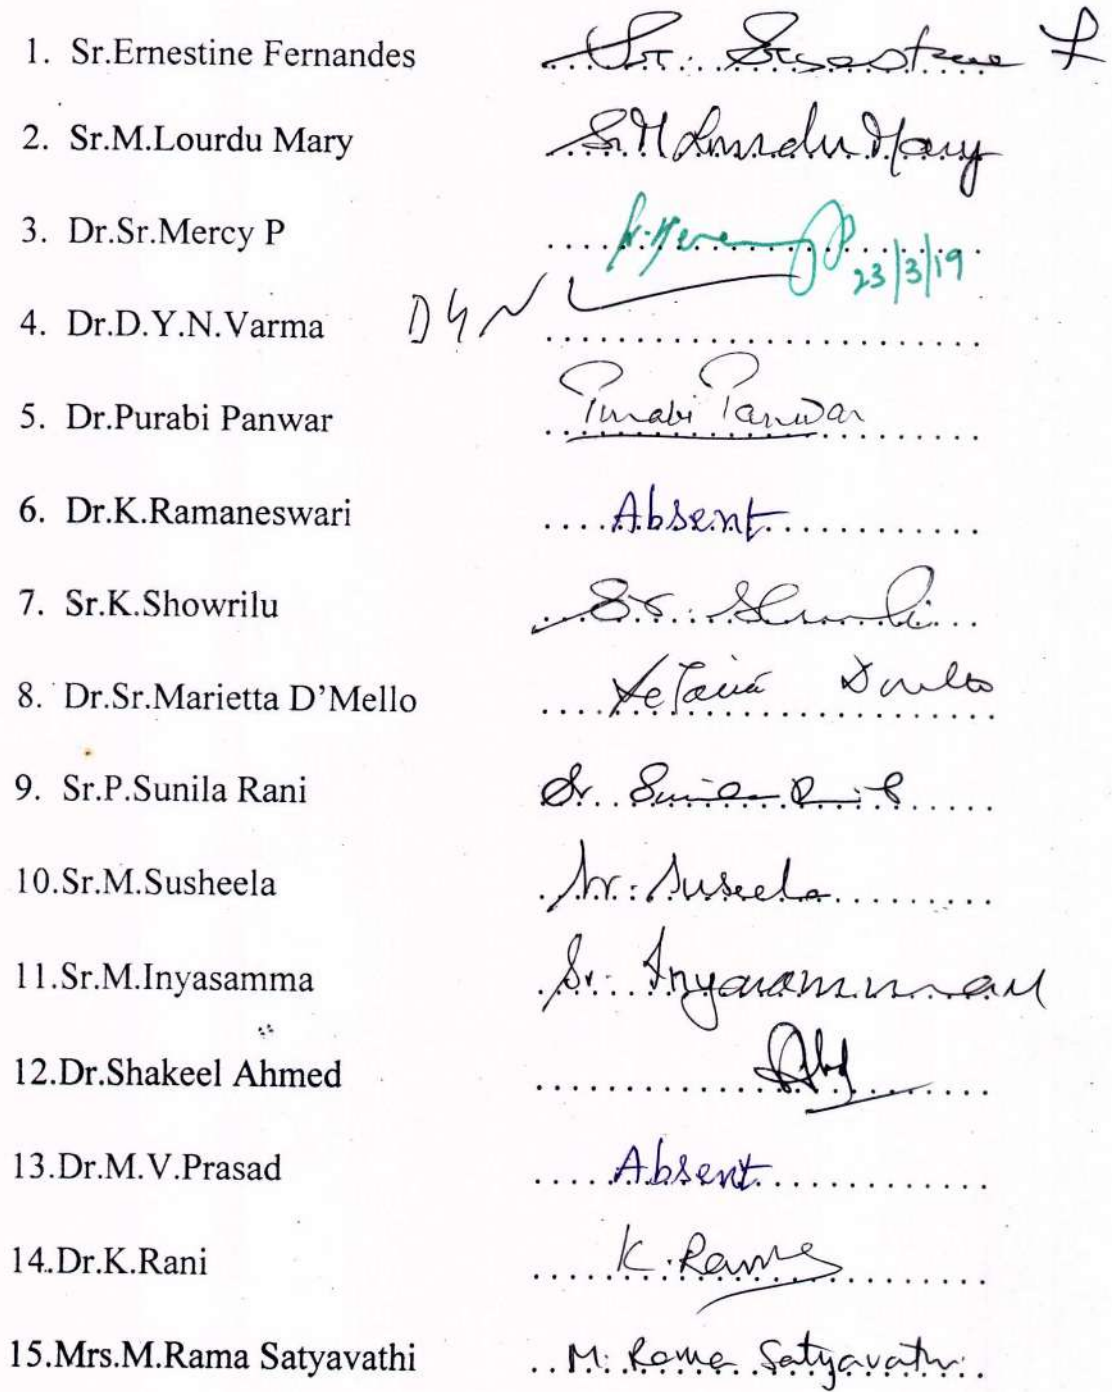 1. Sr.Ernestine Fernandes ...Sr. Ernestine F
2. Sr.M.Lourdu Mary ...Sr. M Lourdu Mary
3. Dr.Sr.Mercy P ....Sr. Mercy P 23/3/19
4. Dr.D.Y.N.Varma DYN ........................
5. Dr.Purabi Panwar ..Purabi Panwar........
6. Dr.K.Ramaneswari ....Absent.............
7. Sr.K.Showrilu ...Sr.
8. Dr.Sr.Marietta D'Mello
9. Sr.P.Sunila Rani Sr. Sunila Rani P.....
10.Sr.M.Susheela .Sr. Suseela.........
11.Sr.M.Inyasamma .Sr. Inyasamma
12.Dr.Shakeel Ahmed
13.Dr.M.V.Prasad .....Absent.............
14.Dr.K.Rani .....K. Rani.........
15.Mrs.M.Rama Satyavathi ..M. Rama Satyavathi..